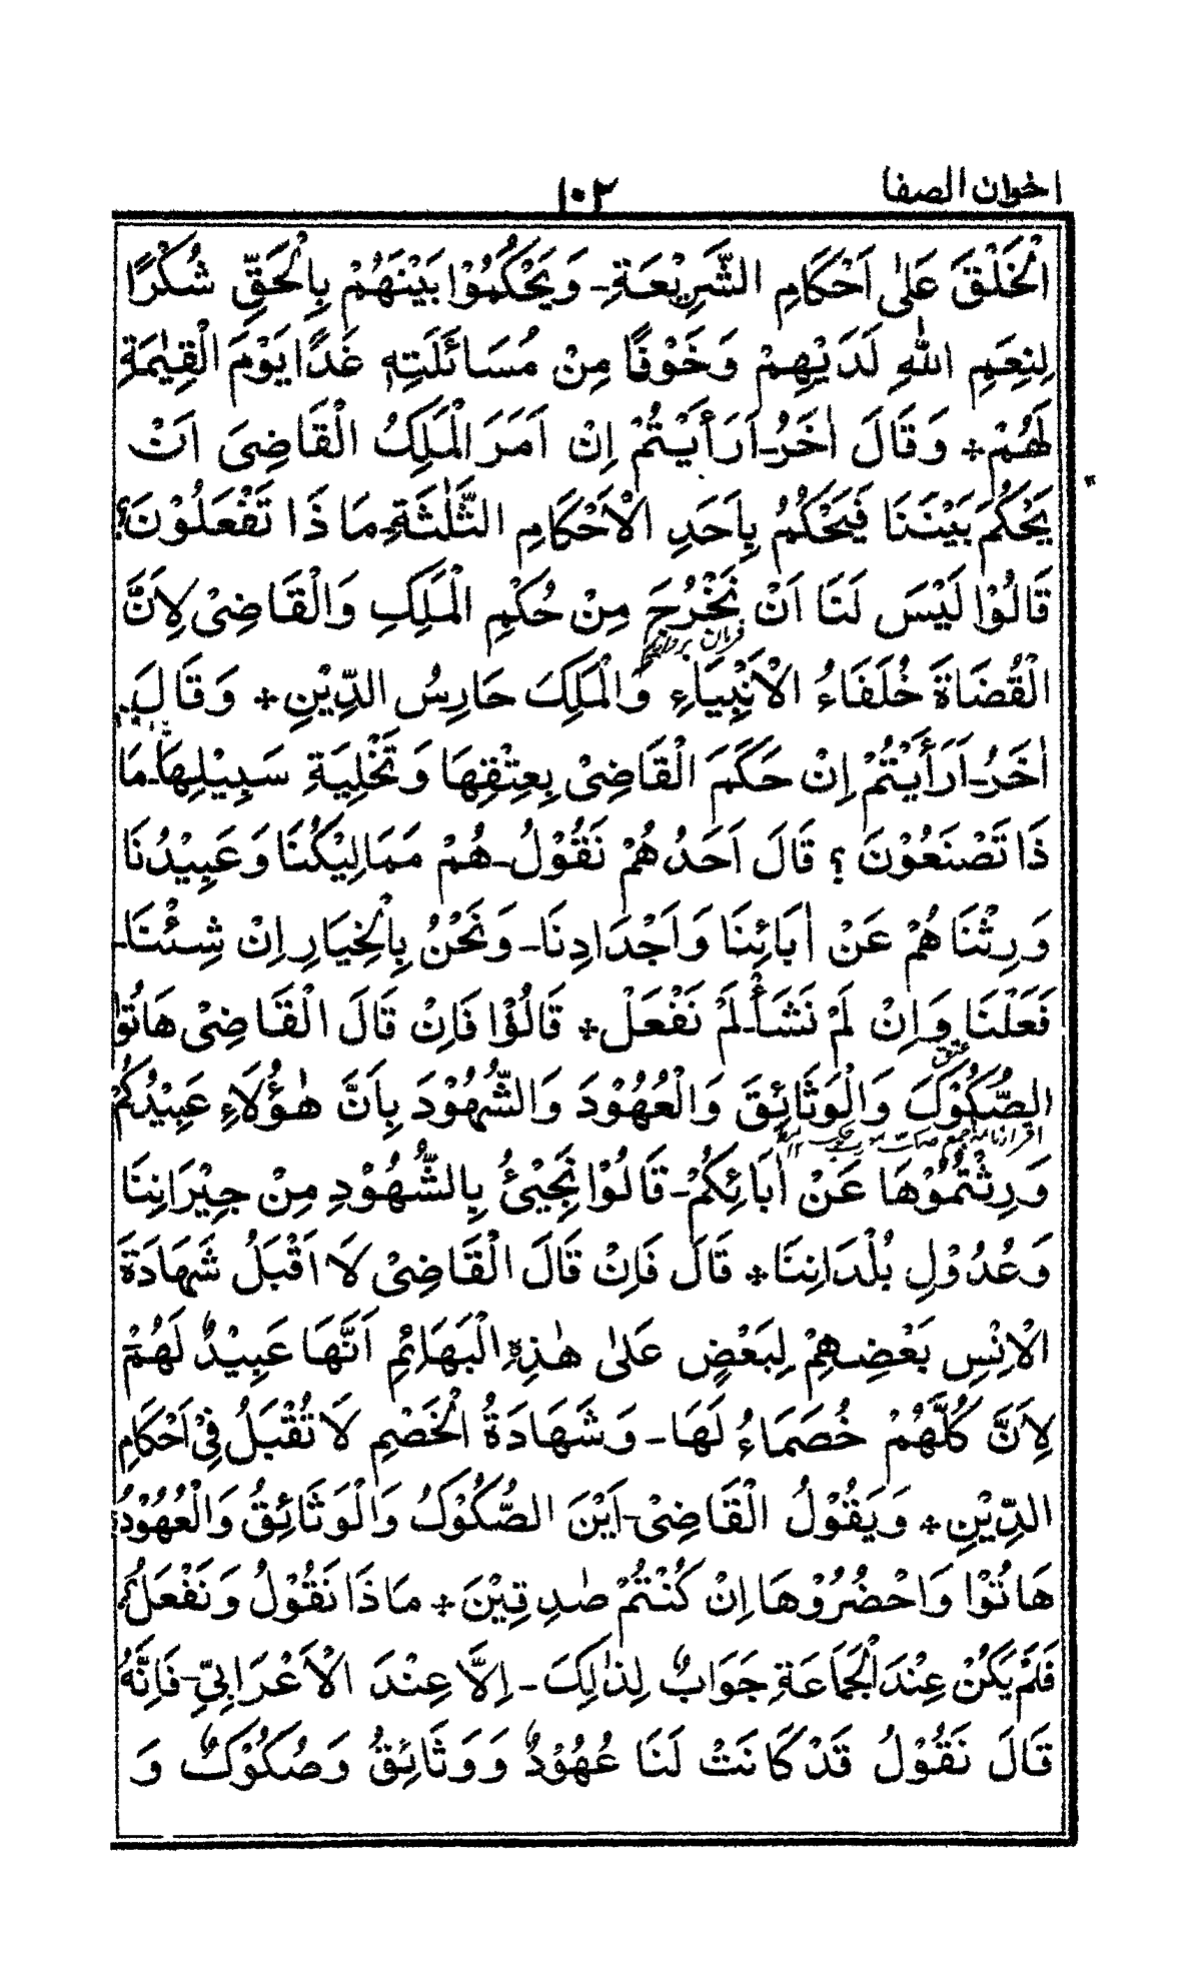 اخوان الصفا
۱۰۲
الْخَلْقَ عَلٰى اَحْكَامِ الشَّرِيْعَةِ۔ وَيَحْكُمُوْا بَيْنَهُمْ بِالْحَقِّ شُكْرًا
لِنِعَمِ اللّٰهِ لَدَيْهِمْ وَخَوْفًا مِنْ مُسَائَلَتِهٖ غَدًا يَوْمَ الْقِيٰمَةِ
لَهُمْ ÷ وَقَالَ اٰخَرُ۔ اَرَأَيْتُمْ اِنْ اَمَرَ الْمَلِكُ الْقَاضِىَ اَنْ
يَحْكُمَ بَيْنَنَا فَيَحْكُمُ بِاَحَدِ الْاَحْكَامِ الثَّلٰثَةِ۔ مَا ذَا تَفْعَلُوْنَ؟
قَالُوْا لَيْسَ لَنَا اَنْ نَخْرُجَ مِنْ حُكْمِ الْمَلِكِ وَالْقَاضِىْ لِاَنَّ
الْقُضَاةَ خُلَفَاءُ الْاَنْبِيَاءِ وَالْمَلِكَ حَارِسُ الدِّيْنِ ÷ وَقَالَ
اٰخَرُ۔ اَرَأَيْتُمْ اِنْ حَكَمَ الْقَاضِىْ بِعِتْقِهَا وَتَخْلِيَةِ سَبِيْلِهَا۔ مَا
ذَا تَصْنَعُوْنَ ؟ قَالَ اَحَدُهُمْ نَقُوْلُ۔ هُمْ مَمَالِيْكُنَا وَعَبِيْدُنَا
وَرِثْنَاهُمْ عَنْ اٰبَائِنَا وَاَجْدَادِنَا۔ وَنَحْنُ بِالْخِيَارِ اِنْ شِئْنَا۔
فَعَلْنَا وَاِنْ لَمْ نَشَأْ۔ لَمْ نَفْعَلْ ÷ قَالُوْا فَاِنْ قَالَ الْقَاضِىْ هَاتُوْا
الصُّكُوْكَ وَالْوَثَائِقَ وَالْعُهُوْدَ وَالشُّهُوْدَ بِاَنَّ هٰؤُلَاءِ عَبِيْدُكُمْ
وَرِثْتُمُوْهَا عَنْ اٰبَائِكُمْ۔ قَالُوْا نَجِيْئُ بِالشُّهُوْدِ مِنْ جِيْرَانِنَا
وَعُدُوْلِ بُلْدَانِنَا ÷ قَالَ فَاِنْ قَالَ الْقَاضِىْ لَا اَقْبَلُ شَهَادَةَ
الْاِنْسِ بَعْضِهِمْ لِبَعْضٍ عَلٰى هٰذِهِ الْبَهَائِمِ اَنَّهَا عَبِيْدٌ لَهُمْ
لِاَنَّ كُلَّهُمْ خُصَمَاءُ لَهَا۔ وَشَهَادَةُ الْخَصْمِ لَا تُقْبَلُ فِىْ اَحْكَامِ
الدِّيْنِ ÷ وَيَقُوْلُ الْقَاضِىْ۔ اَيْنَ الصُّكُوْكُ وَالْوَثَائِقُ وَالْعُهُوْدُ
هَاتُوْا وَاحْضُرُوْهَا اِنْ كُنْتُمْ صٰدِقِيْنَ ÷ مَا ذَا نَقُوْلُ وَنَفْعَلُ؟
فَلَمْ يَكُنْ عِنْدَ الْجَمَاعَةِ جَوَابٌ لِذٰلِكَ۔ اِلَّا عِنْدَ الْاَعْرَابِىِّ۔ فَاِنَّهٗ
قَالَ نَقُوْلُ قَدْ كَانَتْ لَنَا عُهُوْدٌ وَوَثَائِقُ وَصُكُوْكٌ وَ